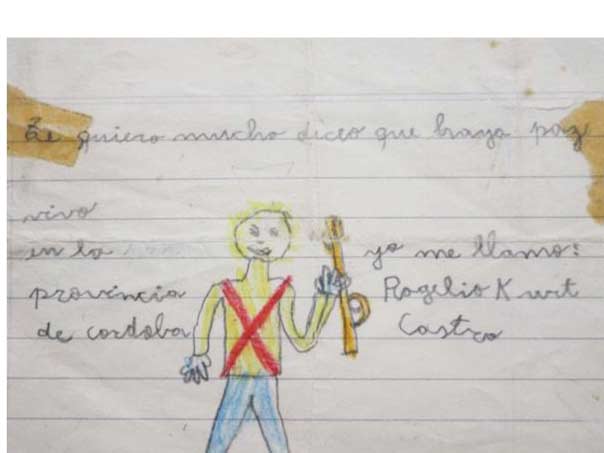 Le quiero mucho diceo que haya paz
vivo
en la
provincia
de cordoba
yo me llamo:
Rogelio Kurt
Castro